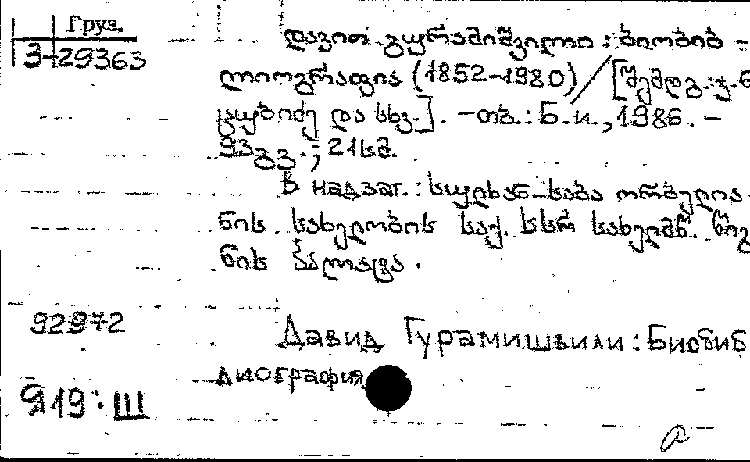 Груз.
3-29363
დავით გურამიშვილი : ბიობიბ-
ლიოგრაფია (1852-1980) / [შემდგ.: ჯ.
და სხვ.]. – თბ. : Б. и., 1986. –
93 გვ. ; 21 სმ.
В надзаг. : სულხან-საბა ორბელია-
ნის სახელობის საქ. სსრ სახელმწ. წიგ
ნის პალატა.
92972
Давид Гурамишвили : Биобиб
лиография
Я19. Ш
a